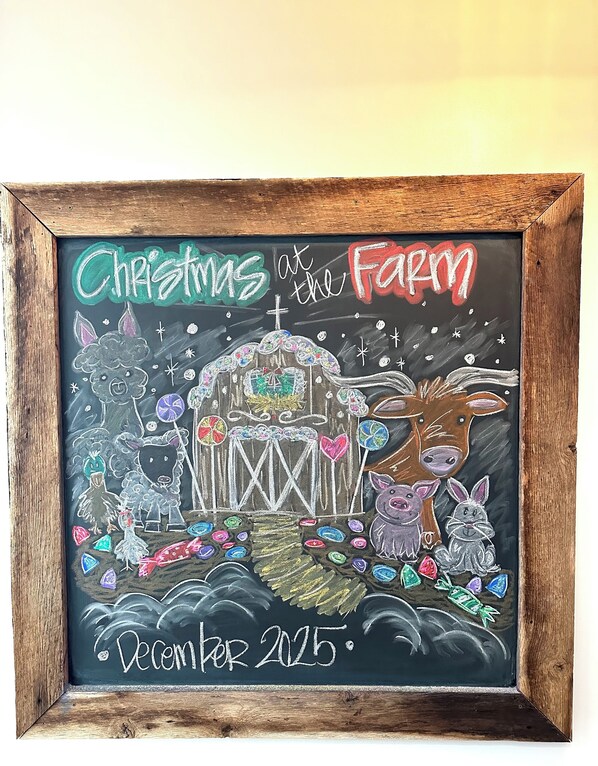 Christmas at the Farm
December 2025